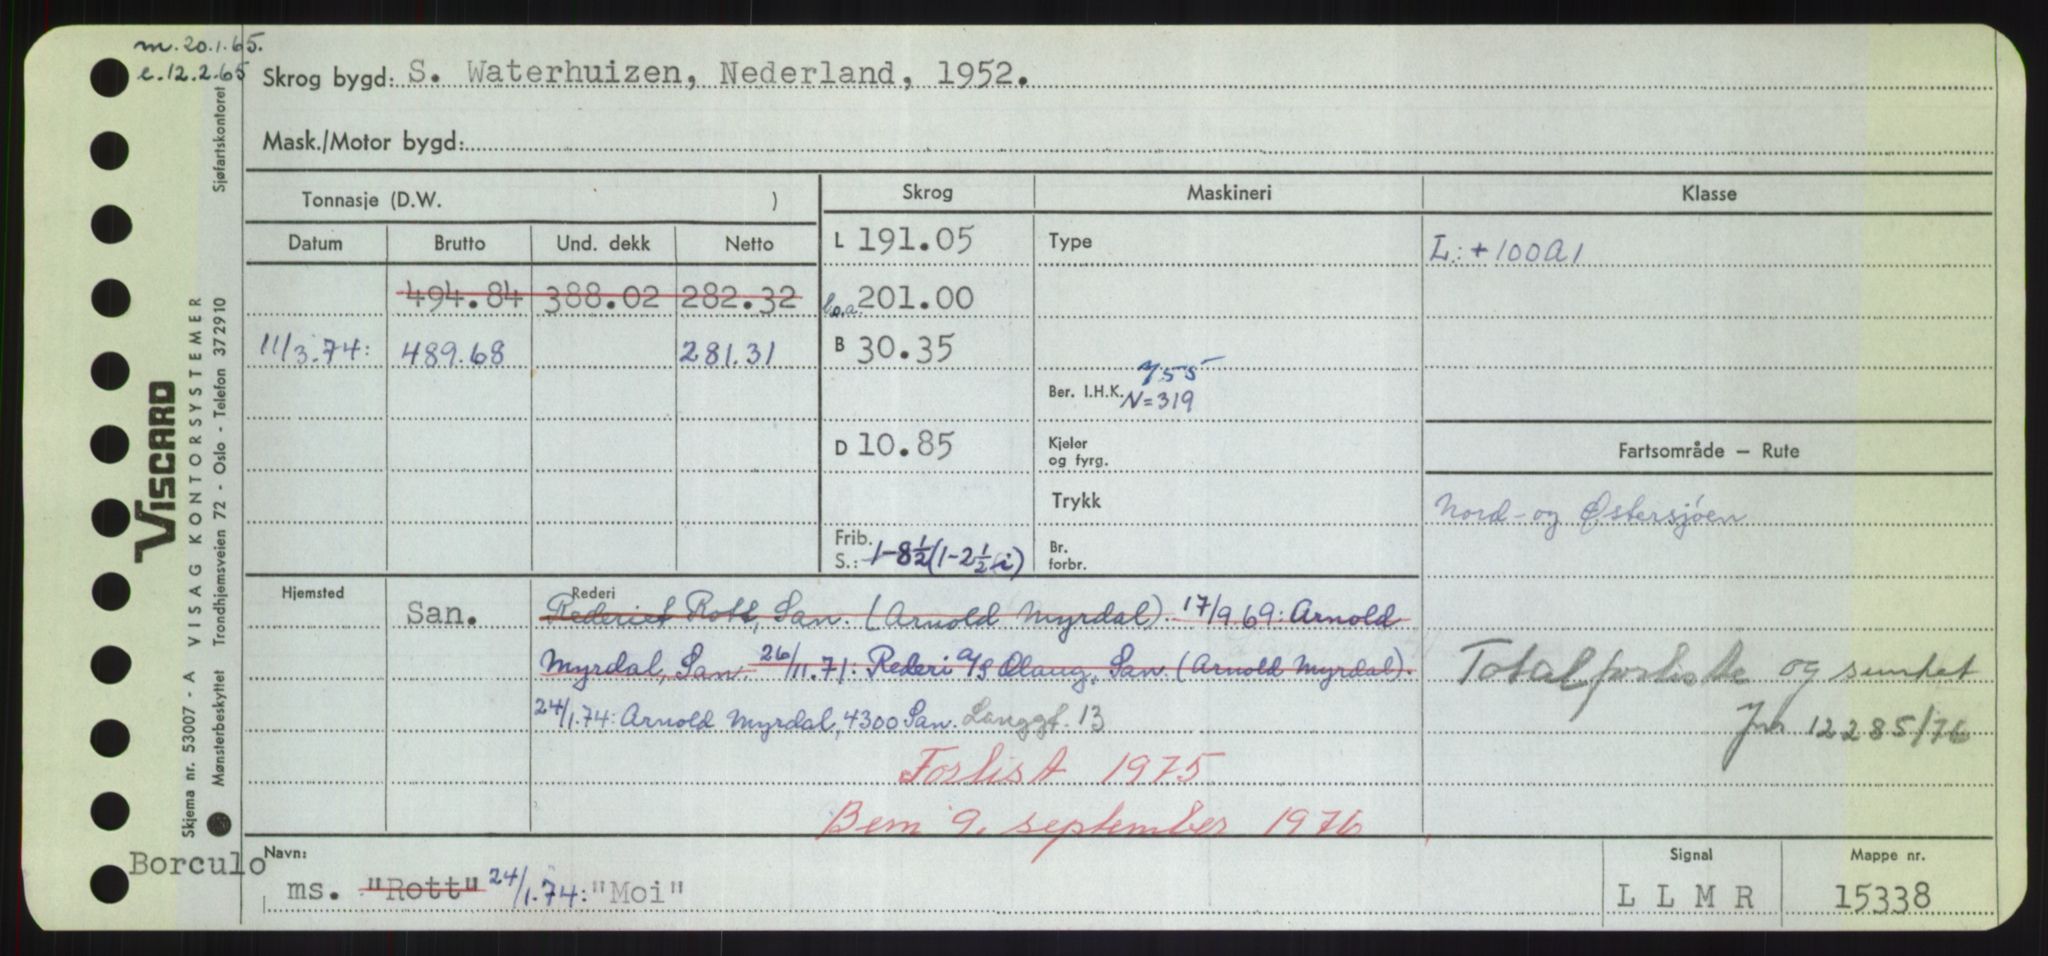 m. 20.1.65.
e. 12.2.65
Skrog bygd: S. Waterhuizen, Nederland, 1952.
Mask./Motor bygd:
Tonnasje (D.W. )
Skrog
Maskineri
Klasse
Datum Brutto Und. dekk Netto
L 191.05
Type
L: + 100 A 1
494.84 388.02 282.32
l.o.a. 201.00
11/3.74: 489.68 281.31
B 30.35
755
Ber. I.H.K. N=319
D 10.85
Kjeler
og fyrg.
Fartsområde — Rute
Trykk
Nord- og Østersjøen
Frib.
S.: 1-8½ (1-2½ i)
Br.
forbr.
Hjemsted
San.
Rederi
Rederiet Rott, San. (Arnold Myrdal). 17/9 69: Arnold
Myrdal, San. 26/11.71: Rederi A/S Olaug, San. (Arnold Myrdal).
24/1.74: Arnold Myrdal, 4300 San. Langgt. 13
Totalforliste og sunket
Jnr 12285/76
Forlist 1975
Bem 9. september 1976
Borculo
Navn:
ms. "Rott" 24/1.74: "Moi"
Signal
L L M R
Mappe nr.
15338
VISCARD
Skjema nr. 53007 - A VISAG KONTORSYSTEMER
Mønsterbeskyttet Trondhjemsveien 72 - Oslo - Telefon 372910 Sjøfartskontoret